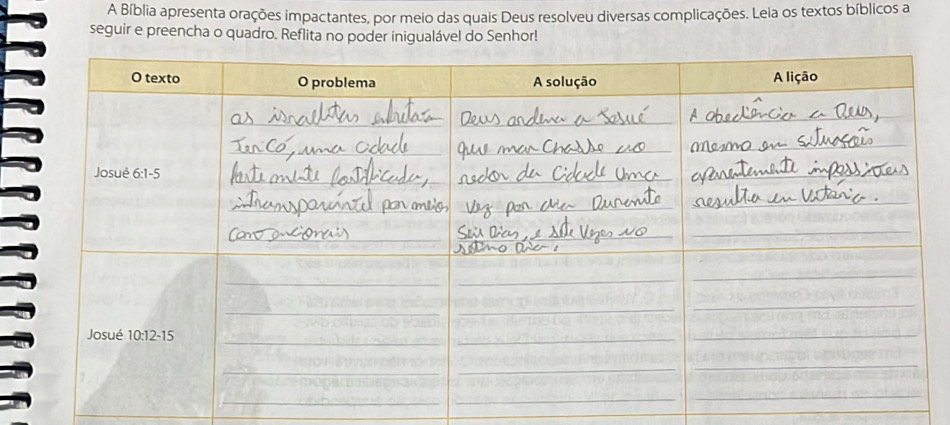 A Bíblia apresenta orações impactantes, por meio das quais Deus resolveu diversas complicações. Leia os textos bíblicos a
seguir e preencha o quadro. Reflita no poder inigualável do Senhor!
O texto
O problema
A solução
A lição
Josué 6:1-5
as israelitas
Jericó, uma cidade
fortemente fortificada,
por meio
convencionais
Deus ordena a Josué
que marchasse ao
redor da cidade uma
vez por dia Durante
Seis Dias, e sete Vezes no
setimo Dia.
A obediência a Deus,
mesmo em situasoẽs
aparentemente impossiveis
resulta em Vitória.
Josué 10:12-15